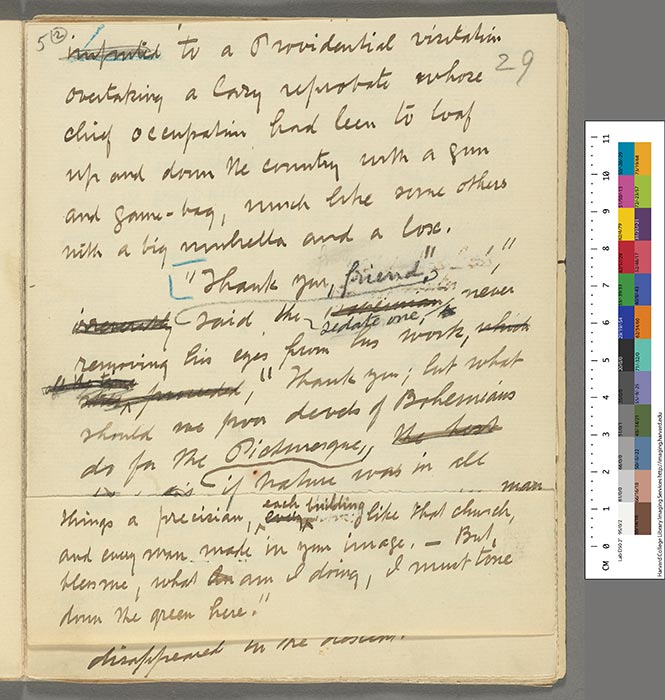 5 ② imputed to a Providential visitation
29
overtaking a lazy reprobate whose
chief occupation had been to loaf
up and down the country with a gun
and game-bag, much like some others
with a big umbrella and a box.
"Thank you, friend,"
said the sedate one, never
removing his eyes from his work, which
proceeded, "Thank you; but what
should we poor devils of Bohemians
do for the Picturesque, the best
if Nature was in all
man
things a precisian, each building like that church,
and every man made in your image. — But,
bless me, what am I doing, I must tone
down the green here."
disappeared in the
11
10
9
8
7
6
5
4
3
2
1
CM 0
Harvard College Library Imaging Services http://imaging.harvard.edu